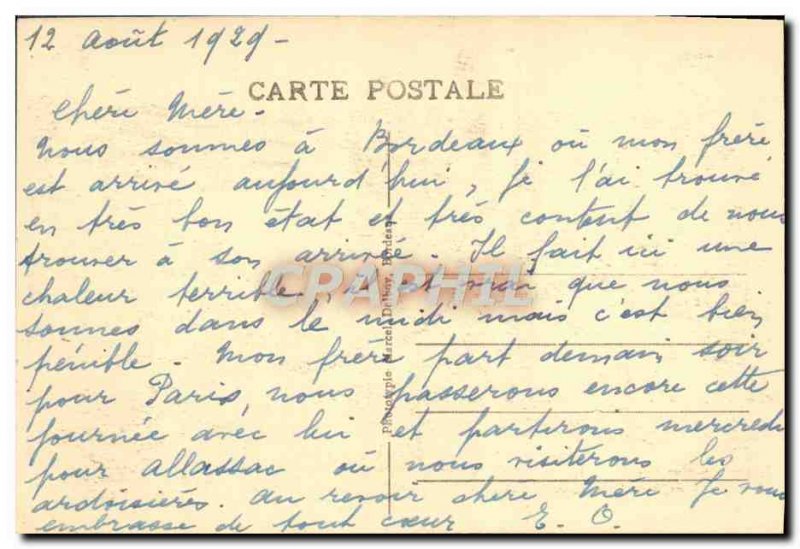 12 Août 1929 -
CARTE POSTALE
Chère Mère -
Nous sommes à Bordeaux où mon frère
est arrivé aujourd'hui, je l'ai trouvé
en très bon état et très content de nous
trouver à son arrivée. Il fait ici une
chaleur terrible, il est vrai que nous
sommes dans le midi mais c'est bien
pénible. Mon frère part demain soir
pour Paris, nous passerons encore cette
journée avec lui et partirons mercredi
pour Allassac où nous visiterons les
ardoisières. Au revoir chère Mère Je vous
embrasse de tout cœur E. O.
Phototypie Marcel Delboy, Bordeaux
CPAPHIL